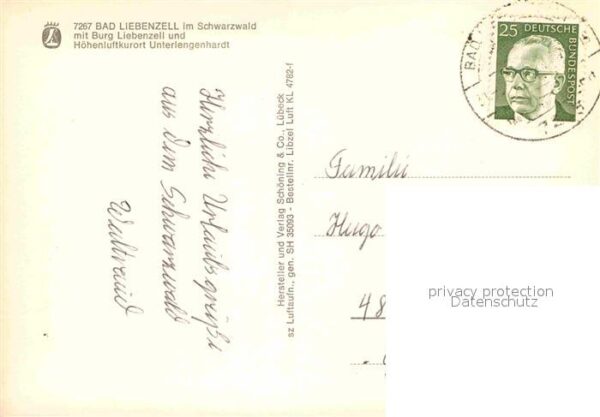 7267 BAD LIEBENZELL im Schwarzwald
mit Burg Liebenzell und
Höhenluftkurort Unterlengenhardt
Herzliche Urlaubsgrüße
aus dem Schwarzwald
Waltraud
Hersteller und Verlag Schöning & Co., Lübeck
sz Luftaufn., gen. SH 35093 - Bestellnr. Libzel Luft KL 4762-f
25 DEUTSCHE BUNDESPOST
BAD
Familie
Hugo
48
privacy protection
Datenschutz